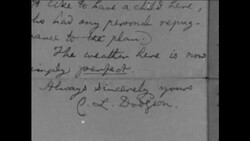 like to have a child here,
he had any personal repug-
nance to the plan.)
The weather here is now
simply perfect.
Always sincerely yours
C. L. Dodgson.